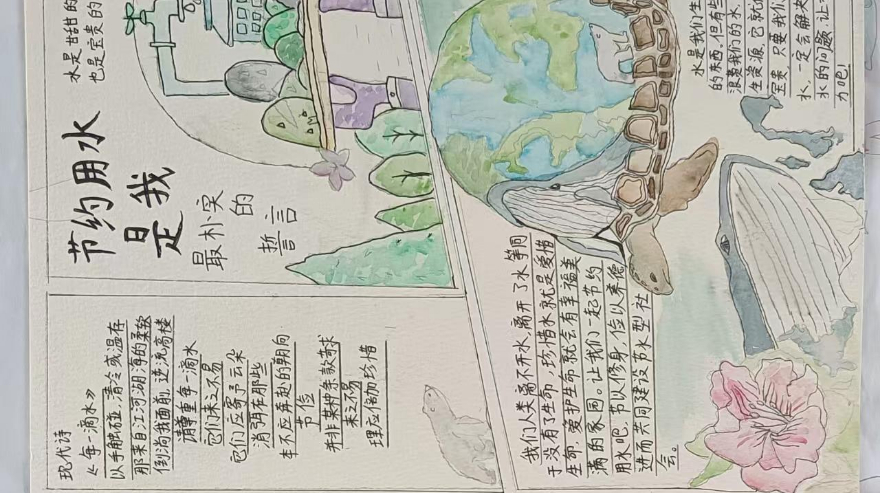 节约用水
是我
最朴实
的
誓言
水是甘甜的
也是宝贵的
现代诗
《每一滴水》
以手触碰,清冷或温存
那来自江河湖海的柔软
倒淌我面前,逆流高楼
请尊重每一滴水
它们来之不易
它们应寄予云朵
消弭在那些
本不应奔赴的朝向
节俭
并非某种条款苛求
来之不易
理应倍加珍惜
我们人类离不开水,离开了水等同
于没有了生命,珍惜水就是爱惜
生命,爱护生命就会有幸福美
满的家园。让我们一起节约
用水吧,节以修身,俭以养德
进而共同建设节水型社
会。
水是我们生
的东西,但有些
浪费我们的水
生资源,它就
宝贵,只要我们
水,一定会解决
水的问题,让
力吧!